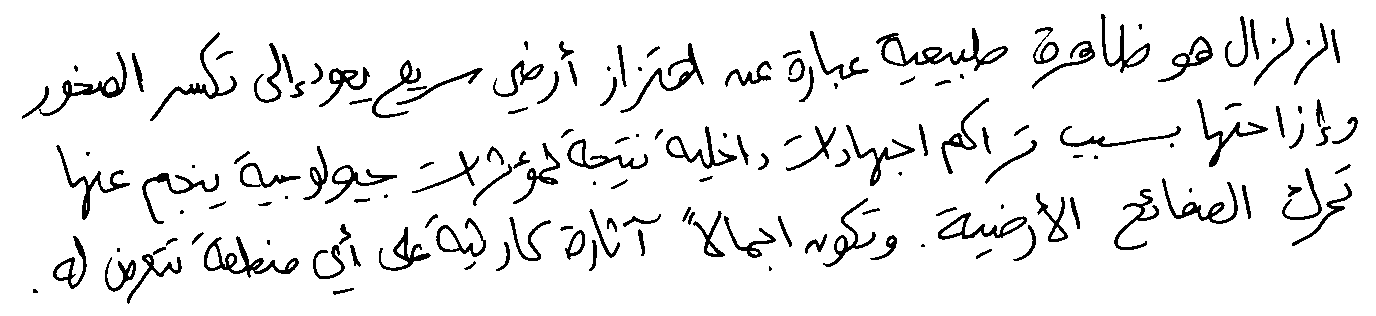 الزلزال هو ظاهرة طبيعية عبارة عن اهتزاز أرضي سريع يعود إلى تكسر الصخور
وإزاحتها بسبب تراكم اجهادات داخلية نتيجة لمؤثرات جيولوجية ينجم عنها
تحرك الصفائح الأرضية. وتكون اجمالاً آثارة كارثية على أي منطقة تتعرض له.